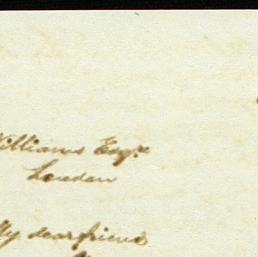 Williams Esqr
London
My dear friend